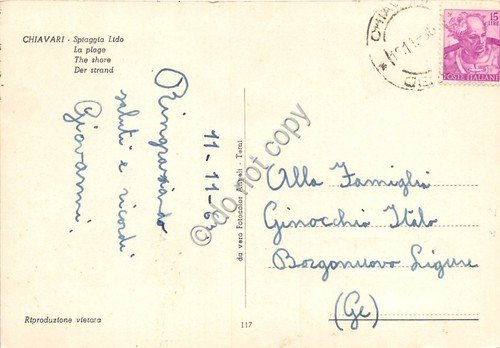 CHIAVARI - Spiaggia Lido
La plage
The shore
Der strand
Ringraziando
saluti e ricordi
Giovanni
11-11-6
da vera Fotocolor Angeli - Terni
do not copy
CHIAVARI
15
LIRE
POSTE ITALIANE
Alla Famiglia
Ginocchio Italo
Borgonuovo Ligure
(Ge)
Riproduzione vietata
117